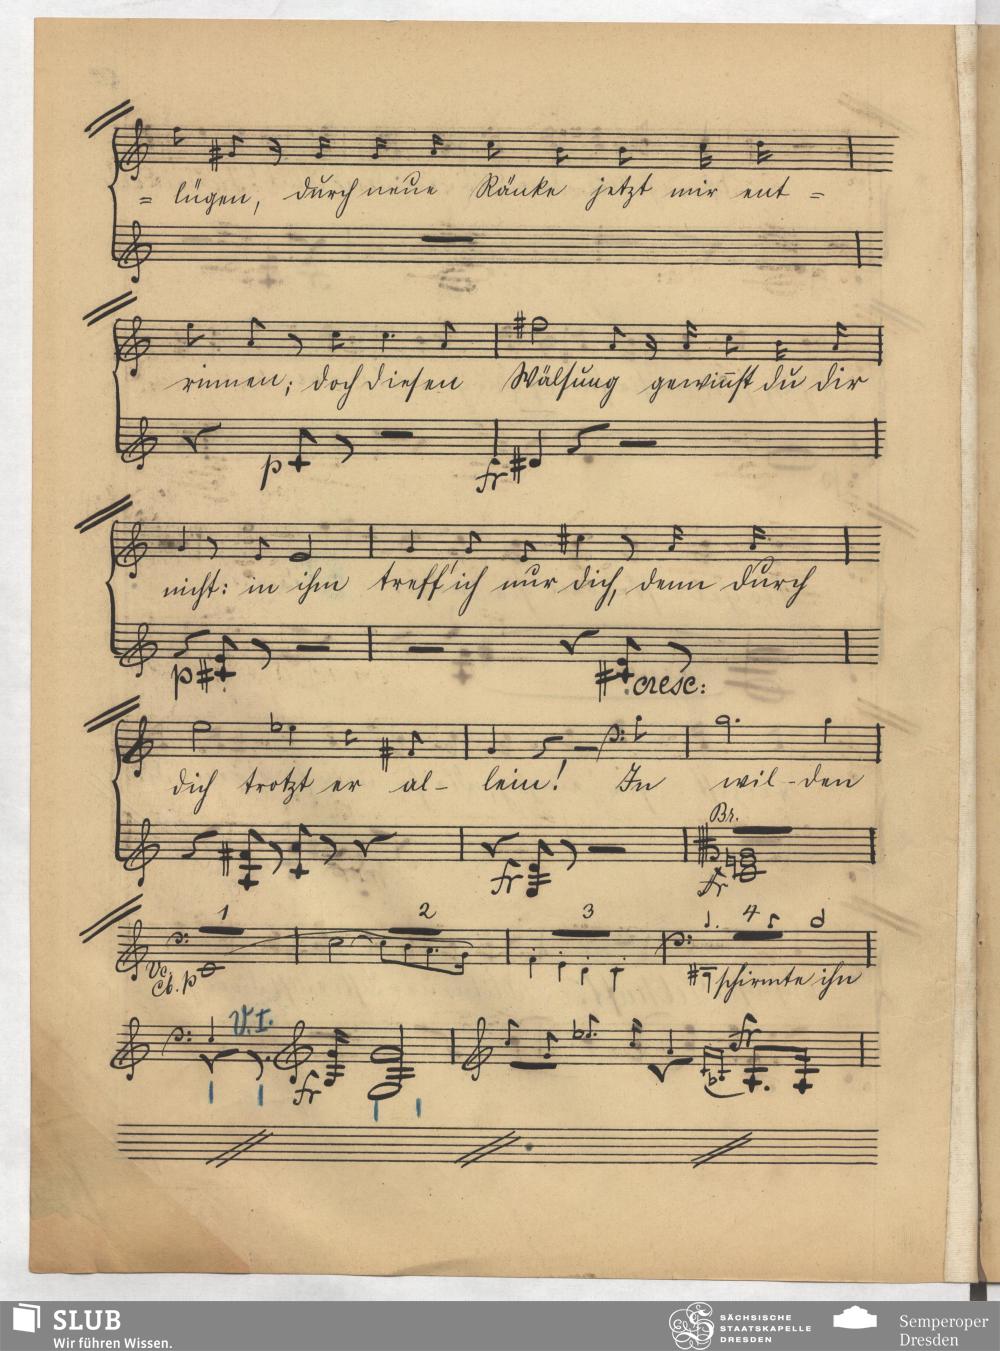 = lügen, durch neue Ränke jetzt mir ent =
rinnen; doch diesen Wälsung gewin̄st du dir
p fr
nicht: in ihm treff' ich nur dich, denn durch
p cresc:
dich trotzt er al- lein! In wil-den
Br.
fr fr
1 2 3 4
Vc. Cb. p schirmte ihn
V.I.
fr fr
SLUB
Wir führen Wissen.
SÄCHSISCHE
STAATSKAPELLE
DRESDEN
Semperoper
Dresden